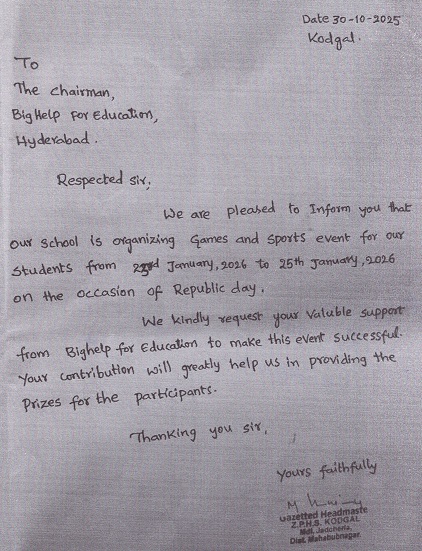 Date 30-10-2025
Kodgal.
To
The Chairman,
Big Help For Education,
Hyderabad.
Respected sir,
We are pleased to Inform you that
our school is organizing Games and sports event for our
students from 23rd January, 2026 to 25th January, 2026
on the occasion of Republic day.
We kindly request your valuble support
from Bighelp for Education to make this event successful.
Your contribution will greatly help us in providing the
Prizes for the participants.
Thanking you sir,
yours faithfully
Gazetted Headmaste
Z.P.H.S. KODGAL
Mdl. Jadcherla,
Dist. Mahabubnagar.